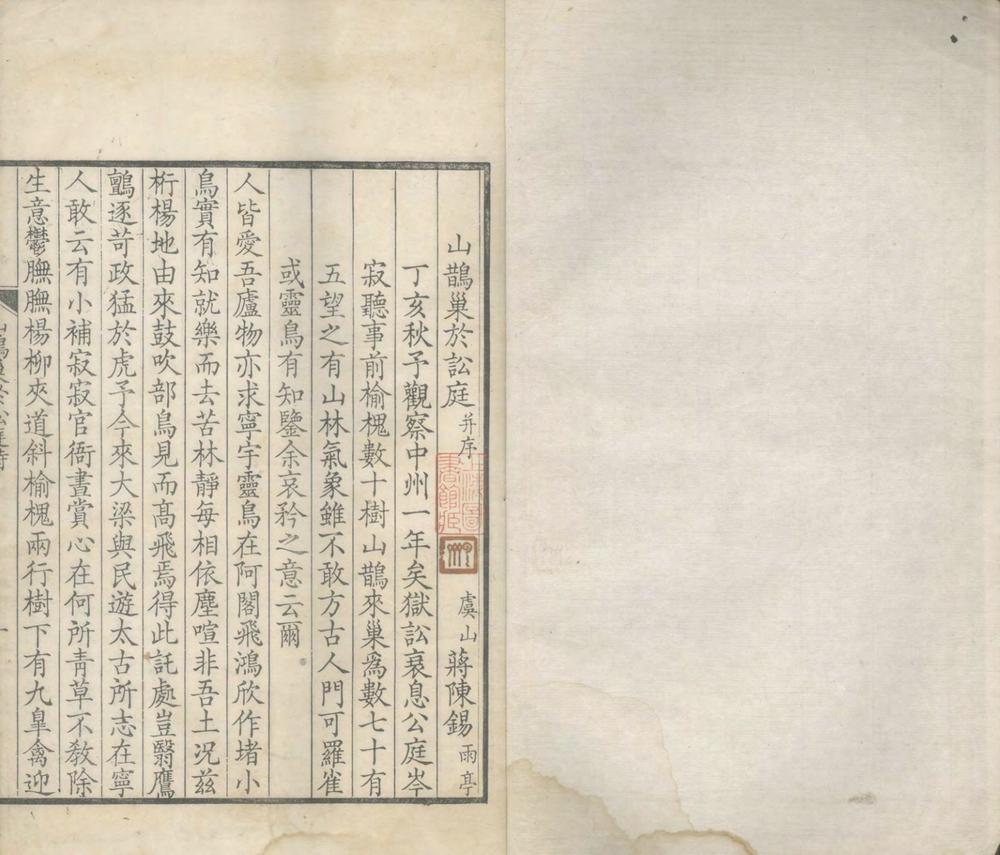 山鵲巢於訟庭 并序 虞山 蔣陳錫 雨亭
丁亥秋予觀察中州一年矣獄訟衰息公庭岑
寂聽事前榆槐數十樹山鵲來巢為數七十有
五望之有山林氣象雖不敢方古人門可羅雀
或靈鳥有知鑒余哀矜之意云爾
人皆愛吾廬物亦求寧宇靈鳥在阿閣飛鴻欣作堵小
鳥實有知就樂而去苦林靜每相依塵喧非吾土况茲
桁楊地由來鼓吹部鳥見而高飛焉得此託處豈翳鷹
鸇逐苛政猛於虎予今來大梁與民遊太古所志在寧
人敢云有小補寂寂官衙晝賞心在何所青草不教除
生意鬱膴膴楊柳夾道斜榆槐兩行樹下有九皐禽迎
上海圖書館藏